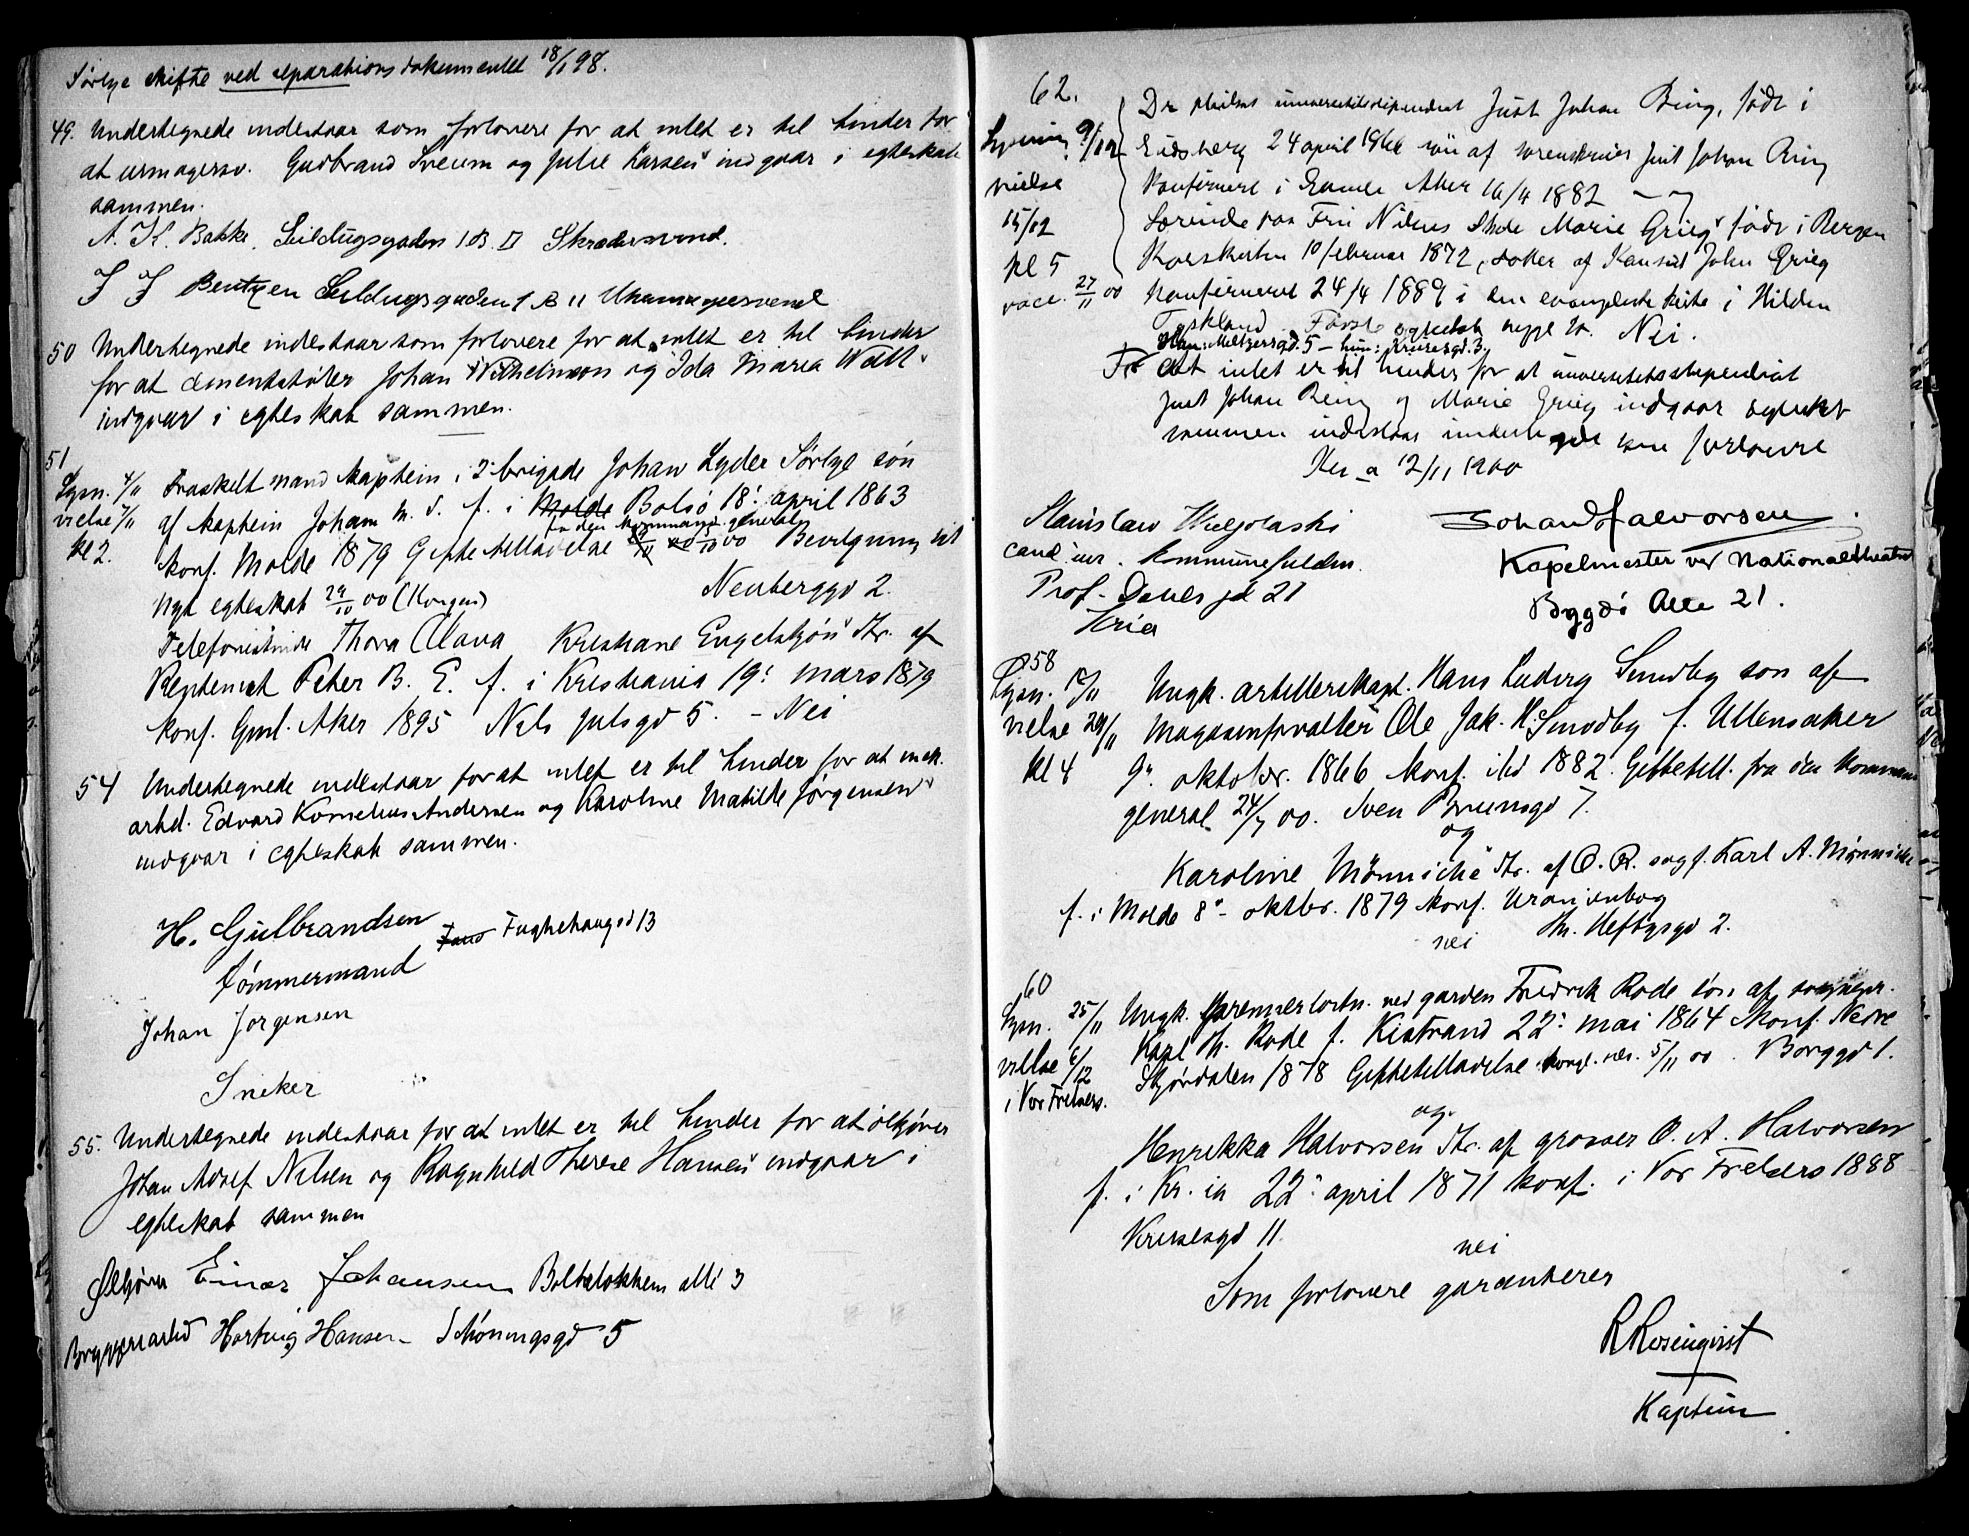 Sørlye skifte ved separationsdokumentet 18/1 98.
49. Undertegnede indestaar som forlovere for at intet er til hinder for
at urmagersv. Gudbrand Sveum og Julie Larsen indgaar i egteskab
sammen.
A. K. Bakke. Seildugsgaden 1 B. II Skrædersvend.
J J Bentzen Seildugsgaden 1 B II Uhrmagersvend
50 Undertegnede indestaar som forlovere for at intet er til hinder
for at cementstøber Johan Wilhelmson og Ida Maria Wall
indgaar i egteskab sammen.
51
Lysn. 4/11 Fraskilt mand kaptein i 2 brigade Johan Lyder Sørlye søn
vielse 7/11 af kaptein Johan M. S. f. i Molde Bolsö 18: april 1863
fra den kommand. general
kl 2. konf. Molde 1879 Giftetilladelse 00 Bevilgning til
nyt egteskab 29/10 00 (Kongen) Neuberggd 2.
Telefonistinde Thora Olava Kristiane Engelskjön dtr. af
Repslemst Peter B. E. f. i Kristiania 19: mars 1879
konf. Gml. Aker 1895 Nils Juelsgd 5. - Nei
54 Undertegnede indestaar for at intet er til hinder for at mek.
arbd. Edvard Kornelius Andersen og Karoline Matilde Jørgensen
indgaar i egteskab sammen.
H. Gulbrandsen Fuglehauggd 13
Tømmermand
Johan Jorgensen
Sneker
55. Undertegnede indestaar for at intet er til hinder for at ölkjörer
Johan Adolf Nilsen og Ragnhild Therese Hansen indgaar i
egteskab sammen
Ølkjörer Einar Johansen Bolteløkkens allé 3
Bryggeriarbd Hartvig Hansen Schøningsgd 5
62.
Dr philos universitetsstipendiat Just Johan Bing, født i
Lysning 9/12 Eidsberg 24 april 1866 søn af sorenskriver Just Johan Bing
vielse Konfirmert i Gamle Aker 16/4 1882
15/12 Lærerinde paa Frk Nissens skole Marie Grieg født i Bergen
kl 5 Korskirken 10 februar 1872, datter af Konsul John Grieg
vacc. 27/11 00 Konfirmeret 24/4 1889 i den evangeliske kirke i Hilden
Tyskland. Første egteskab begge to. Nei.
Han: Meltzersgd. 5 - hun: Krusesgd. 3.
For at intet er til hinder for at universitetsstipendiat
Just Johan Bing og Marie Grieg indgaar egteskab
sammen indestaar undertegnede som forlovere
Kr.a 12/11 1900
Stanislaw Wielgolaski Johan Halvorsen
cand. jur. kommunefuldm. Kapelmester ved Nationaltheatret
Prof. Dahls gd 21 Bygdö Alle 21.
Kria
58
Lysn. 12/11 Ungk. artillerikapt. Hans Ludvig Sundby søn af
vielse 24/11 Magasinforvalter Ole Jak. H. Sundby f. Ullensaker
kl 4 9: oktober. 1866 konf. ibd 1882. Giftetill. fra den kommand.
general 24/7 00. Sven Brunsgd 7.
og
Karoline Mönniche dtr. af O. R. sagf. Karl A. Mönniche
f. i Molde 8: oktbr. 1879 konf. Uranienborg
nei Th. Heftyesgd 2.
60
Lysn. 25/11 Ungk. premierløitn. ved garden Fredrik Rode søn af sogneprest
vielse 6/12 Karl Th. Rode f. Kistrand 22: mai 1864 konf. Nedre
i Vor Frelsers. Stjördalen 1878 Giftetilladelse kongl. res. 5/11 00. Borggd 1.
og.
Henrikka Halvorsen dtr. af grosser O. A. Halvorsen
f. i Kr.ia 22: april 1871 konf. i Vor Frelsers 1888
Krusesgd 11. nei
Som forlovere garanterer
R Rosenqvist
Kaptein